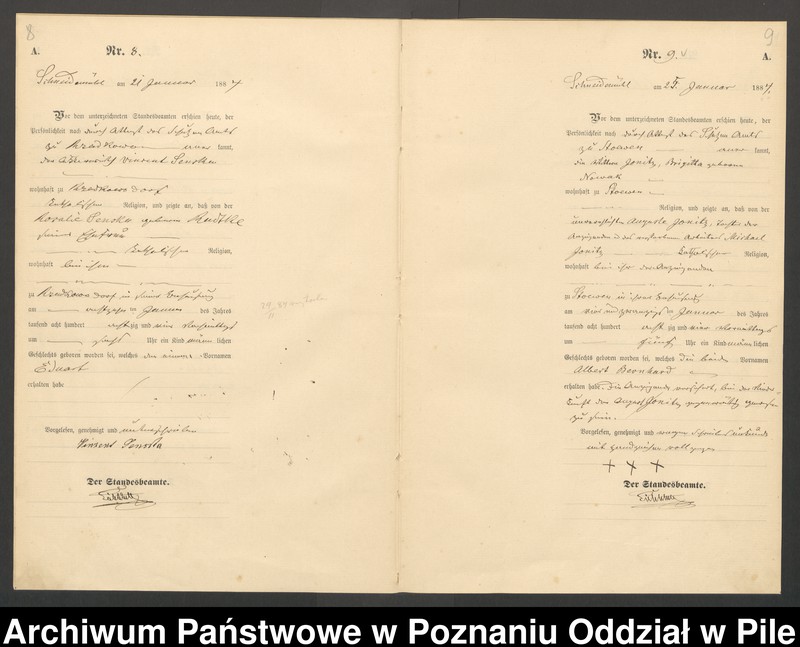 8
A.
Nr. 8.
Schneidemühl am 21 Januar 1884
Vor dem unterzeichneten Standesbeamten erschien heute, der
Persönlichkeit nach durch Attest des Schulzen Amts
zu aner kannt,
den Vincent
wohnhaft zu
Katholischer Religion, und zeigte an, daß von der
Rosalie geborenen
seiner Ehefrau
Katholischer Religion,
wohnhaft bei ihm
zu in seiner Behausung
am achtzehn ten Januar des Jahres
tausend acht hundert achtzig und vier Nachmittags
um sechs Uhr ein Kind männlichen
Geschlechts geboren worden sei, welches den einen Vornamen
Eduard
erhalten habe
Vorgelesen, genehmigt und unterschrieben
Vinzent
Der Standesbeamte.
9
A.
Nr. 9.
Schneidemühl am 25. Januar 1884.
Vor dem unterzeichneten Standesbeamten erschien heute, der
Persönlichkeit nach durch Attest des Schulzen Amts
zu Stoewen aner kannt,
die Wittwe Jonitz, Brigitta geborene
Nowak
wohnhaft zu Stoewen
Religion, und zeigte an, daß von der
unverehelichten Auguste Jonitz, Tochter der
Anzeigenden und des verstorbenen Arbeiters Michael
Jonitz Katholischer Religion,
wohnhaft bei ihr der Anzeigenden
zu Stoewen in ihrer Behausung
am vier und zwanzigsten Januar des Jahres
tausend acht hundert acht zig und vier Vormittags
um fünf Uhr ein Kind männlichen
Geschlechts geboren worden sei, welches die beiden Vornamen
Albert Bernhard
erhalten habe. Die Anzeigende versichert, bei der Nieder-
kunft der August Jonitz gegenwärtig gewesen
zu sein.
Vorgelesen, genehmigt und wegen Schreibensunkunde
mit Handzeichen vollzogen
+ + +
Der Standesbeamte.
Archiwum Państwowe w Poznaniu Oddział w Pile